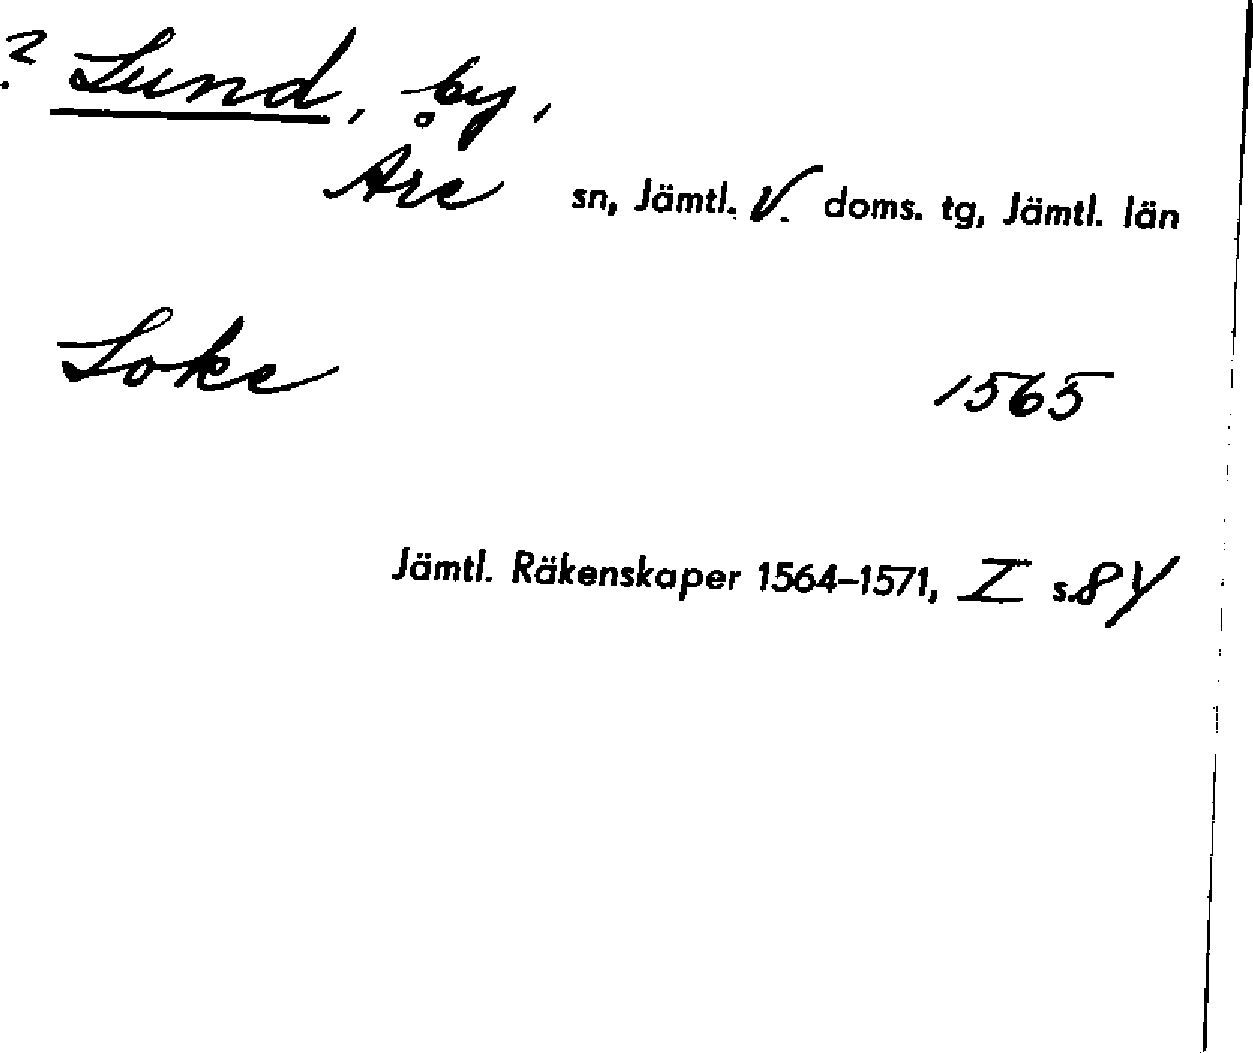 ? Lund, by,
Åre sn, Jämtl. V. doms. tg, Jämtl. län
Loke 1565
Jämtl. Räkenskaper 1564–1571, I s. 84